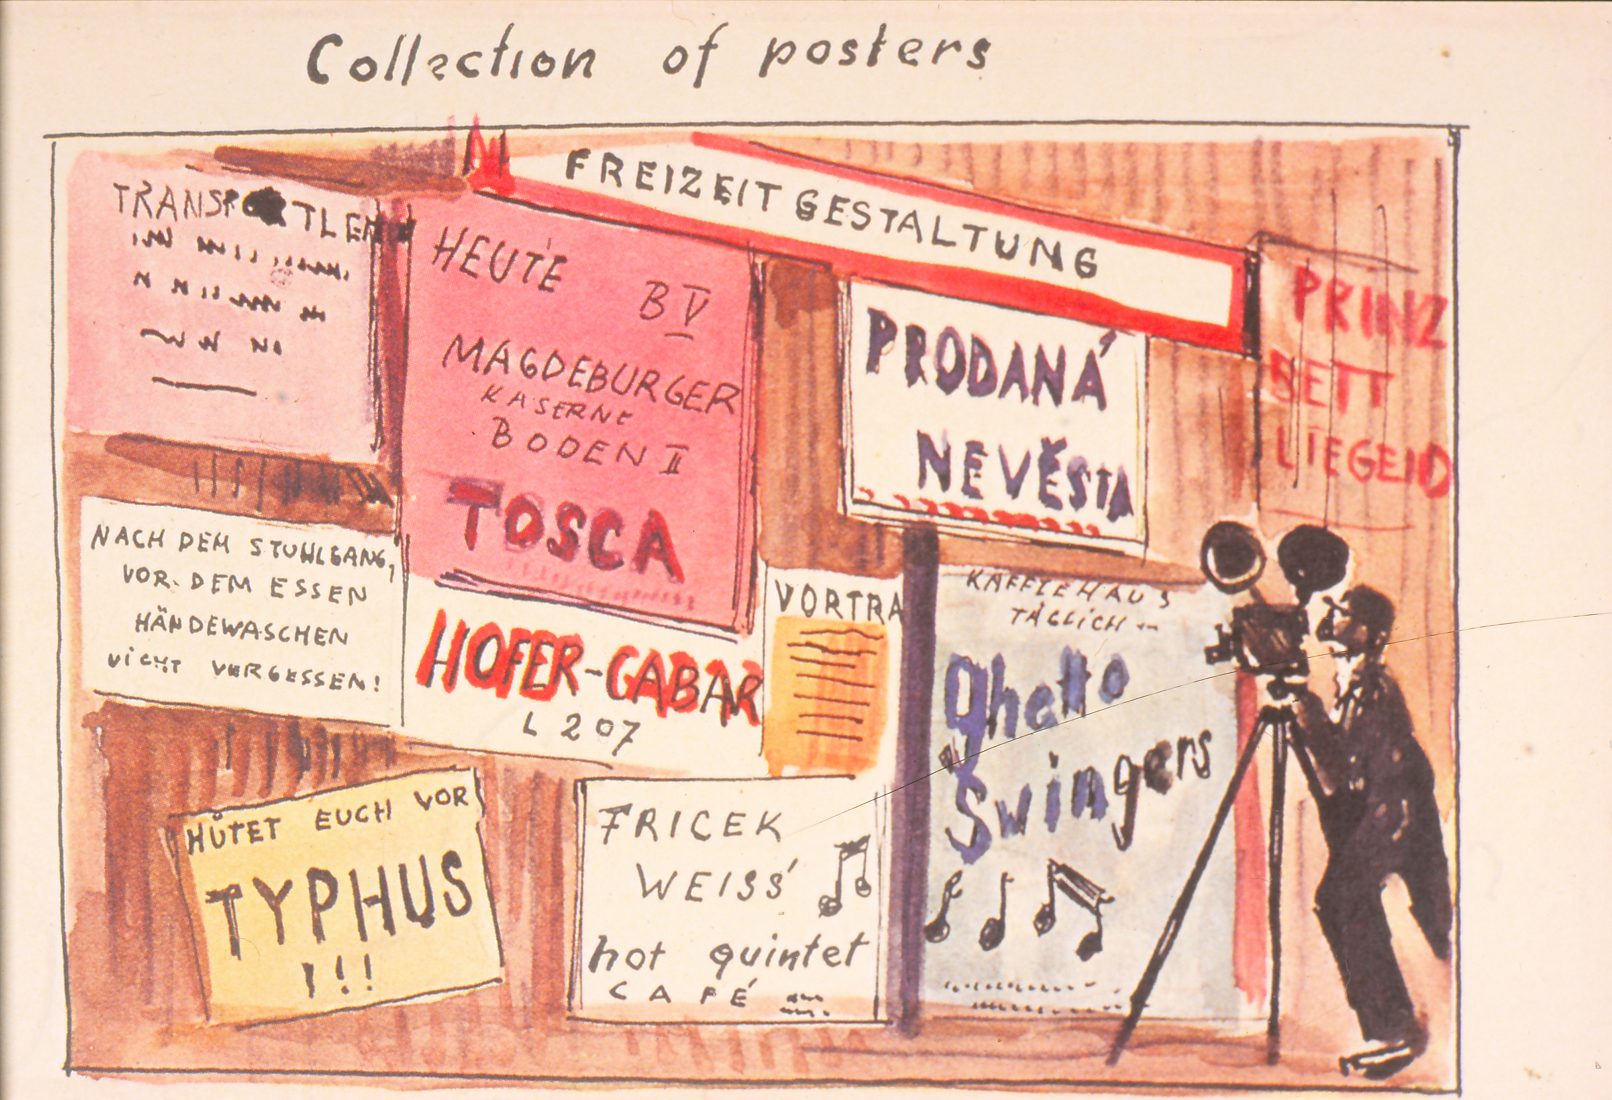 Collection of posters
FREIZEITGESTALTUNG
HEUTE BV
MAGDEBURGER
KASERNE
BODEN II
TOSCA
PRODANÁ
NEVĚSTA
PRINZ
BETT
NACH DEM STUHLGANG,
VOR DEM ESSEN
HÄNDEWASCHEN
NICHT VERGESSEN!
HOFER-GABAR
L 207
VORTRA
KAFFEEHAUS
TÄGLICH
Ghetto
Swingers
HÜTET EUCH VOR
TYPHUS
!!!
FRICEK
WEISS'
hot quintet
CAFÉ